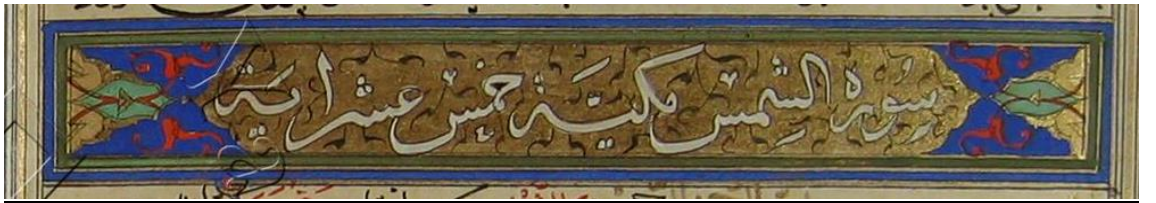 سورة الشمس مكية خمس عشر اية